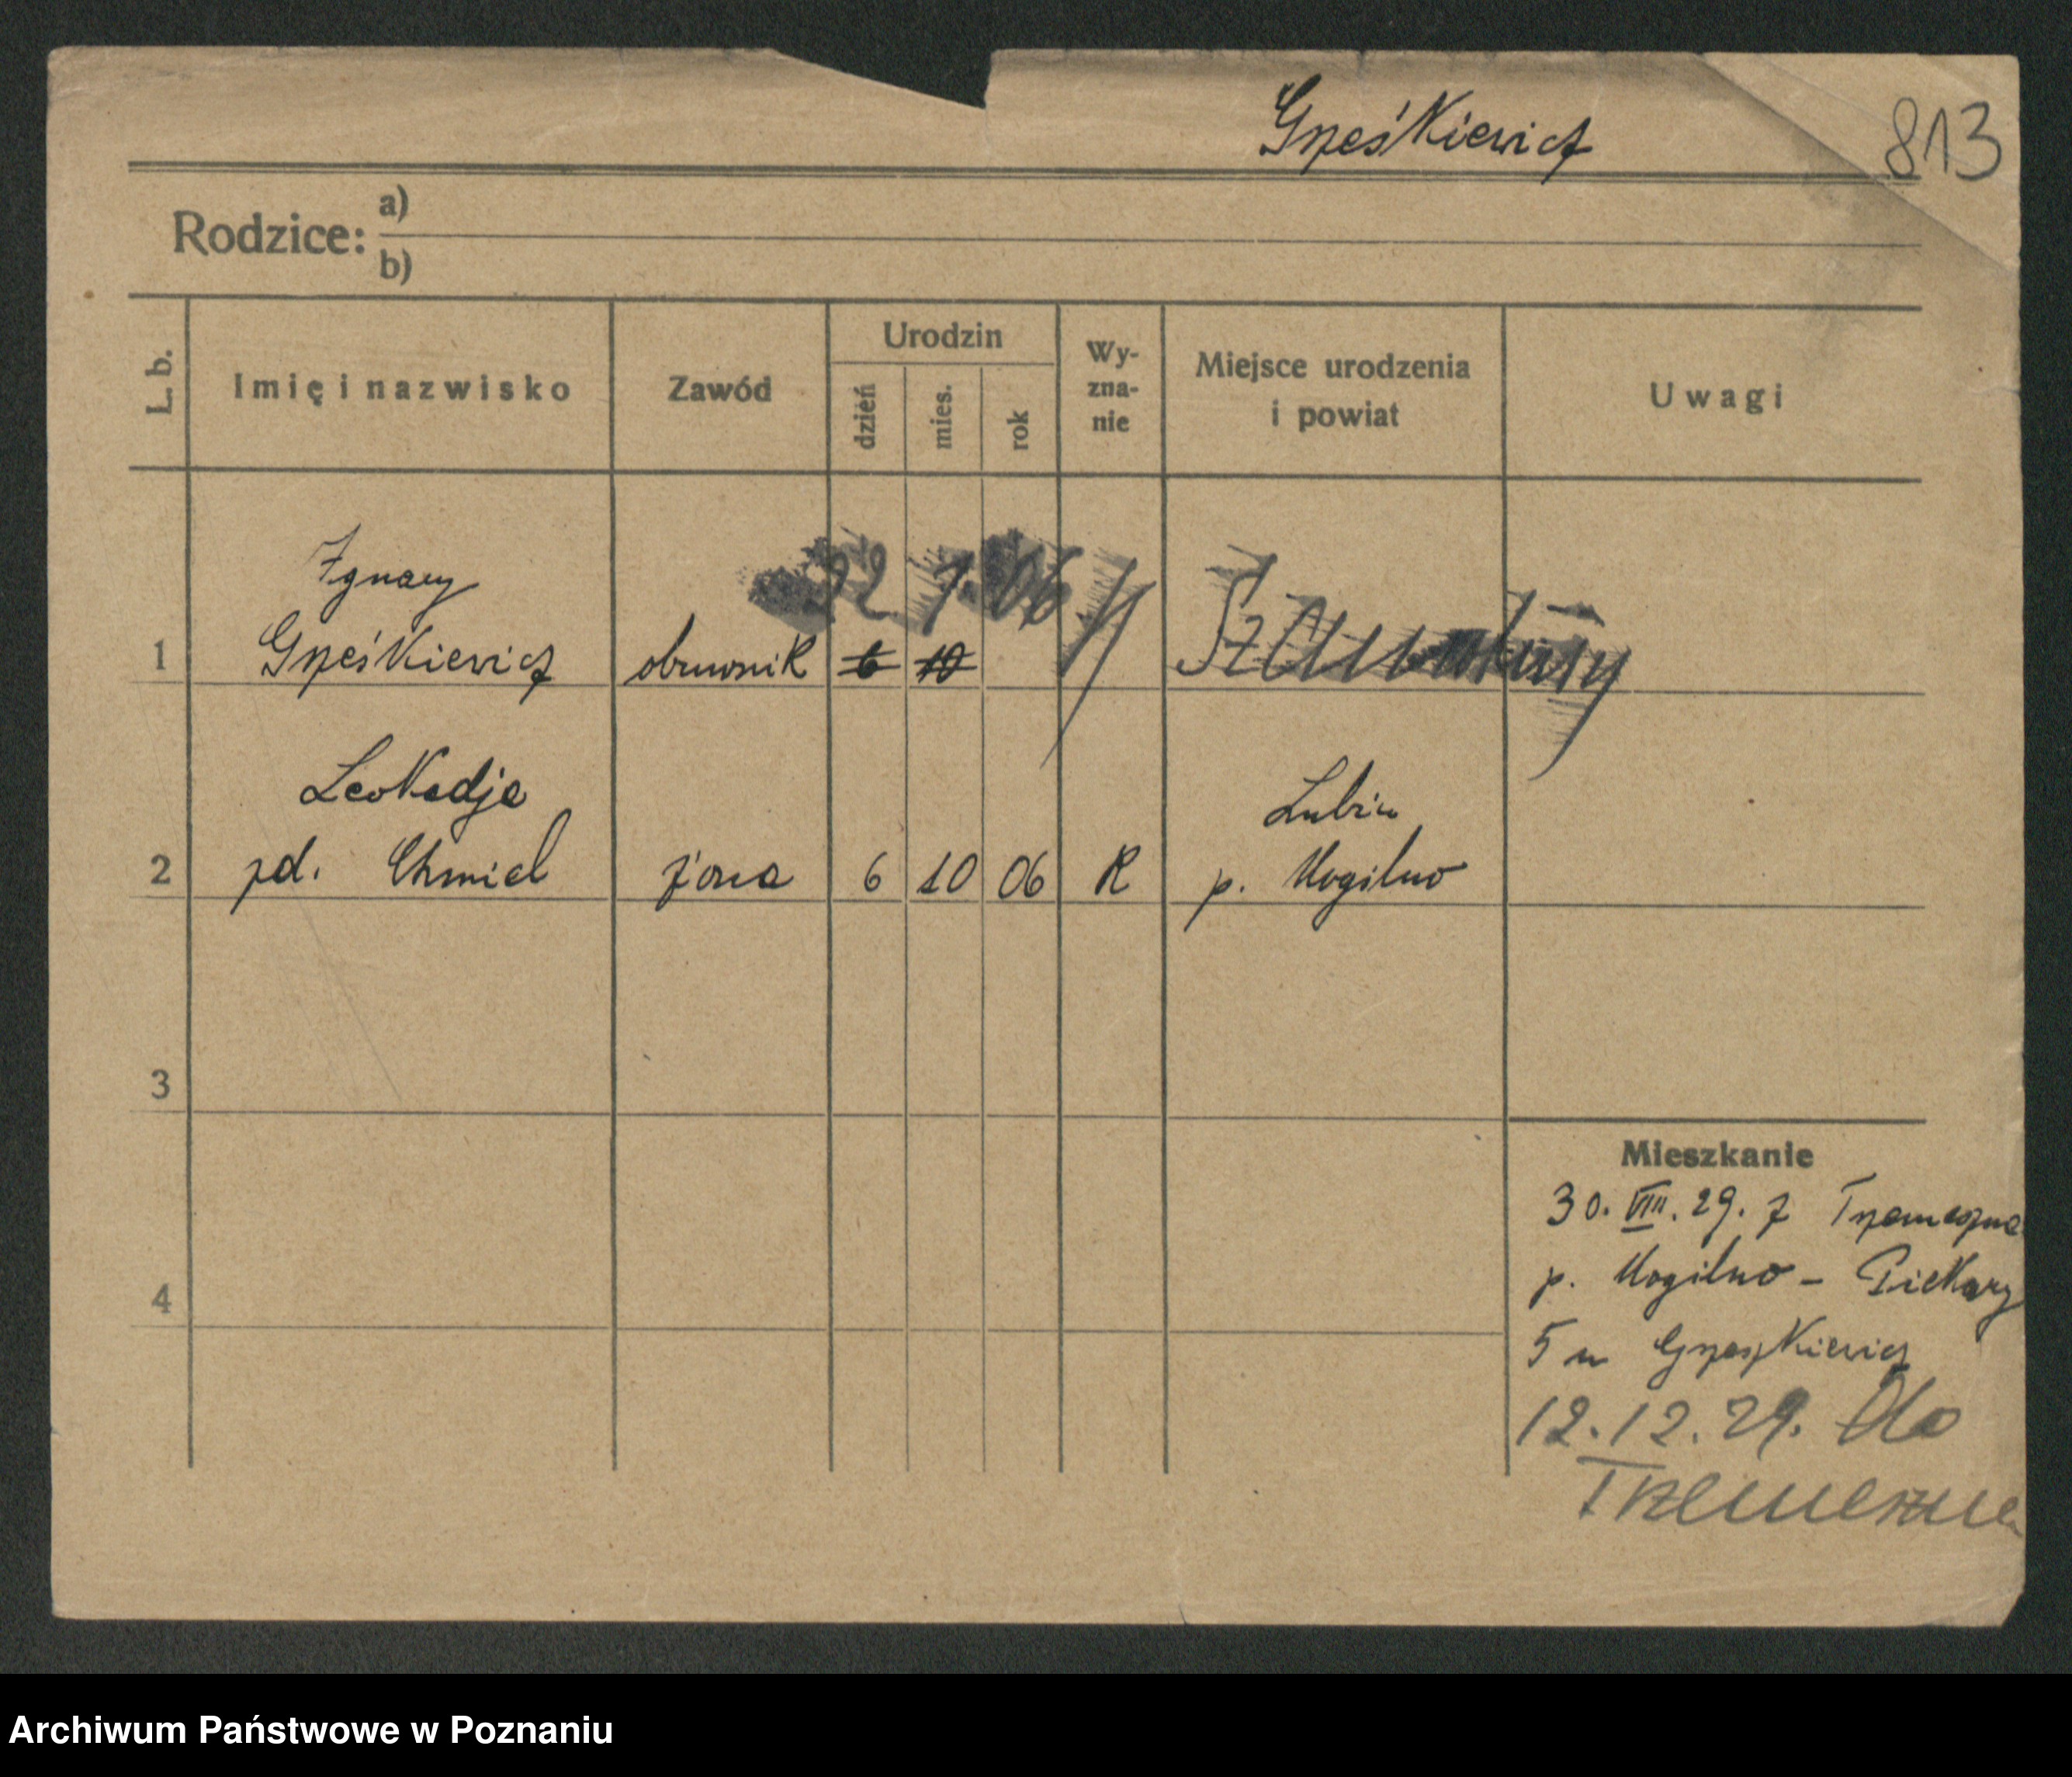 Grześkiewicz
813
Rodzice: a)
b)
L. b.
Imię i nazwisko
Zawód
Urodzin
dzień
mies.
rok
Wy-
zna-
nie
Miejsce urodzenia
i powiat
Uwagi
Ignacy
22 7. 06
1 Grześkiewicz obuwnik 6 10
Szamotuły
Leokadja
Lubin
2 zd. Chmiel żona 6 10 06 R p. Mogilno
3
4
Mieszkanie
30. VIII. 29. z Trzemeszna
p. Mogilno - Piekary
5 u Grzeszkiewicz
12.12.29. do
Trzemeszna
Archiwum Państwowe w Poznaniu